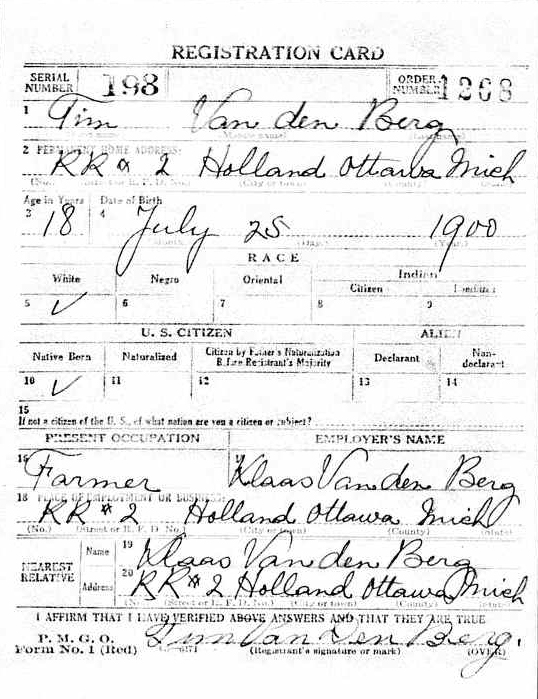 REGISTRATION CARD
SERIAL NUMBER 198 ORDER NUMBER 1268
1 Tim Van den Berg
2 PERMANENT HOME ADDRESS:
RR # 2 Holland Ottawa Mich
(No.) (Street or R. F. D. No.) (City or town) (County) (State)
Age in Years Date of Birth
3 18 4 July 25 1900
(Month) (Day) (Year)
RACE
White Negro Oriental Indian
Citizen
5 ✓ 6 7 8 9
U. S. CITIZEN ALIEN
Native Born Naturalized Citizen by Father's Naturalization Before Registrant's Majority Declarant Non-declarant
10 ✓ 11 12 13 14
15
If not a citizen of the U. S., of what nation are you a citizen or subject?
PRESENT OCCUPATION EMPLOYER'S NAME
16 Farmer Klaas Van den Berg
18 PLACE OF EMPLOYMENT OR BUSINESS:
RR # 2 Holland Ottawa Mich
(No.) (Street or R. F. D. No.) (City or town) (County) (State)
NEAREST RELATIVE Name 19 Klaas Van den Berg
Address 20 RR # 2 Holland Ottawa Mich
(No.) (Street or R. F. D. No.) (City or town) (County) (State)
I AFFIRM THAT I HAVE VERIFIED ABOVE ANSWERS AND THAT THEY ARE TRUE
P. M. G. O.
Form No. 1 (Red) Tim Van Den Berg.
(Registrant's signature or mark) (OVER)